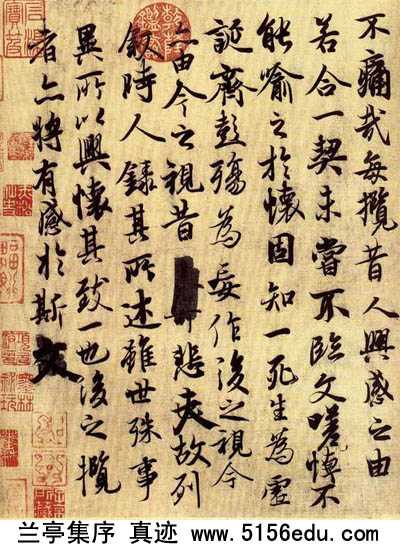 不痛哉每攬昔人興感之由
若合一契未嘗不臨文嗟悼不
能喻之於懷固知一死生為虛
誕齊彭殤為妄作後之視今
亦由今之視昔悲夫故列
叙時人錄其所述雖世殊事
異所以興懷其致一也後之攬
者亦將有感於斯文
兰亭集序 真迹 www.5156edu.com